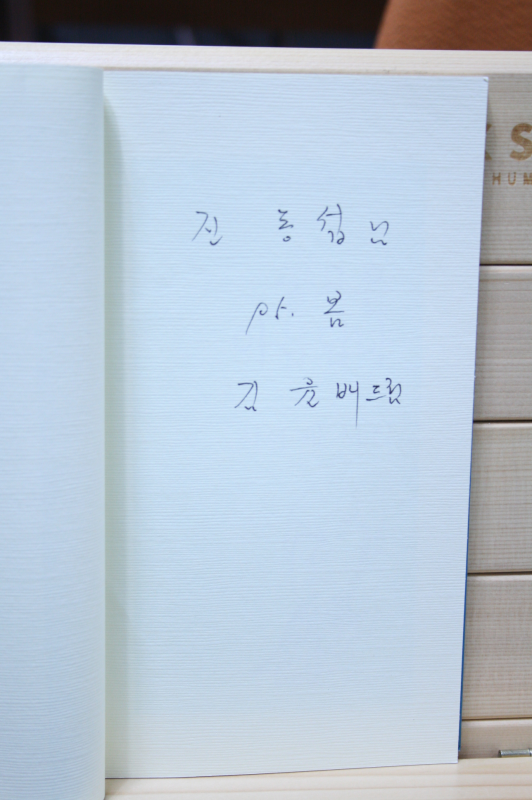 진 동섭 님
김 윤배 드림
K S
HUM